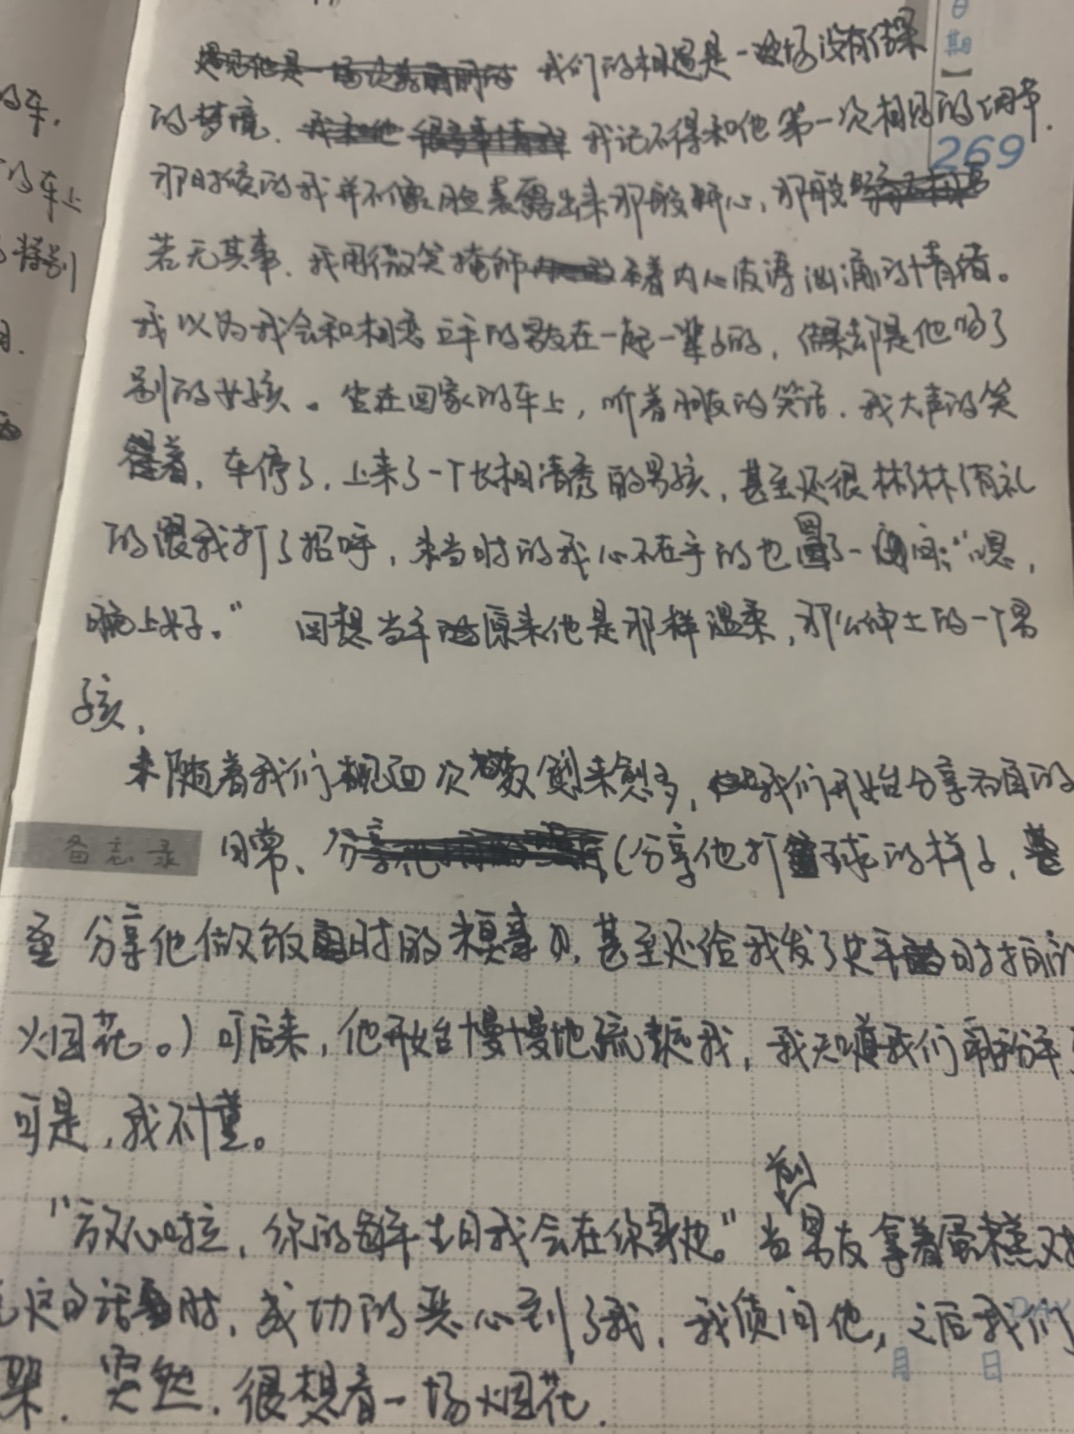 我们的相遇是一场没有结果
的梦境、我记不得和他第一次相遇的细节.
那时候的我并不像脸表露出来那般开心,那般
若无其事、我用微笑掩饰着内心波涛汹涌的情绪。
我以为我会和相恋五年的男友在一起一辈子的,结果却是他吻了
别的女孩。坐在回家的车上,听着朋友的笑话.我大声的笑
着,车停了,上来了一个长相清秀的男孩,甚至还很彬彬有礼
的跟我打了招呼,当时的我心不在乎的也冒了一句:"嗯,
晚上好。" 回想当年原来他是那样温柔,那么绅士的一个男
孩,
随着我们见面次数愈来愈多,我们开始分享各自的
备忘录 日常、(分享他打球的样子,甚
至分享他做饭时的模样,甚至还给我发了史手时拍的
火因花。)可后来,他开始慢慢地疏远我,我知道我们
可是,我不懂。
前
"放心啦,你的每年生日我会在你身边。"当男友拿着蛋糕对
的话时,成功的恶心到了我,我质问他,之后我们
突然.很想看一场烟花.
日
期
】
269
的车.
的车上
特别
月 日